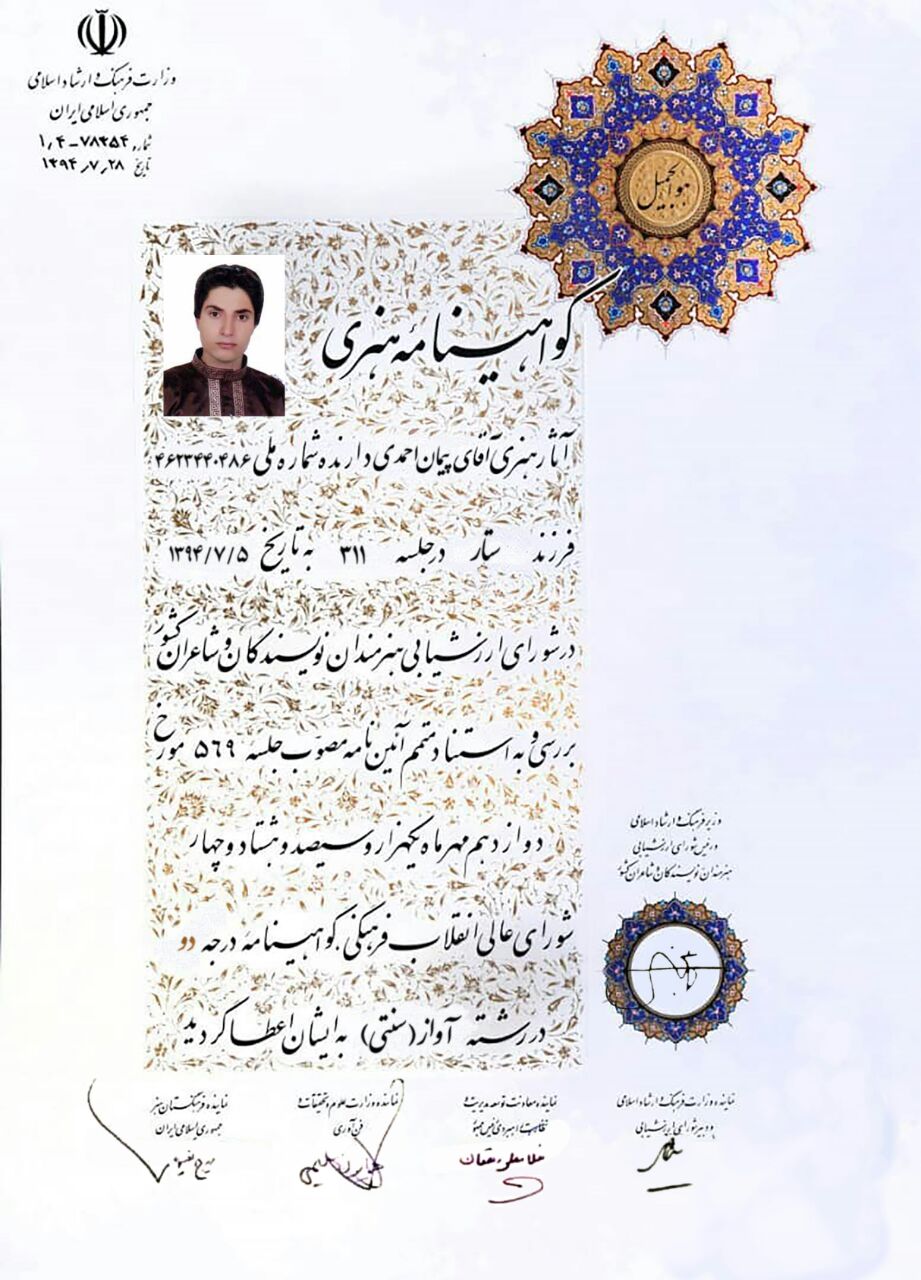 وزارت فرهنگ و ارشاد اسلامی
جمهوری اسلامی ایران
شماره ۱۰۴-۷۸۳۵۴
تاریخ ۱۳۹۴٫۷٫۲۸
هوالجمیل
گواهینامهٔ هنری
آثار هنری آقای پیمان احمدی دارنده شماره ملی ۴۶۲۳۴۴۰۴۸۶
فرزند ستار در جلسه ۳۱۱ به تاریخ ۱۳۹۴/۷/۵
در شورای ارزشیابی هنرمندان نویسندگان و شاعران کشور
بررسی و به استناد متمم آئین نامه مصوب جلسه ۵۶۹ مورخ
دوازدهم مهرماه یکهزار و سیصد و هشتاد و چهار
شورای عالی انقلاب فرهنگی گواهینامهٔ درجه دو
در رشته آواز (سنتی) به ایشان اعطا گردید
وزیر فرهنگ و ارشاد اسلامی
و رئیس شورای ارزشیابی
هنرمندان نویسندگان و شاعران کشور
نماینده وزارت فرهنگ و ارشاد اسلامی
و دبیر شورای ارزشیابی
نماینده معاونت توسعه مدیریت و
نماینده وزارت علوم و تحقیقات و
فن‌آوری
نماینده فرهنگستان هنر
جمهوری اسلامی ایران